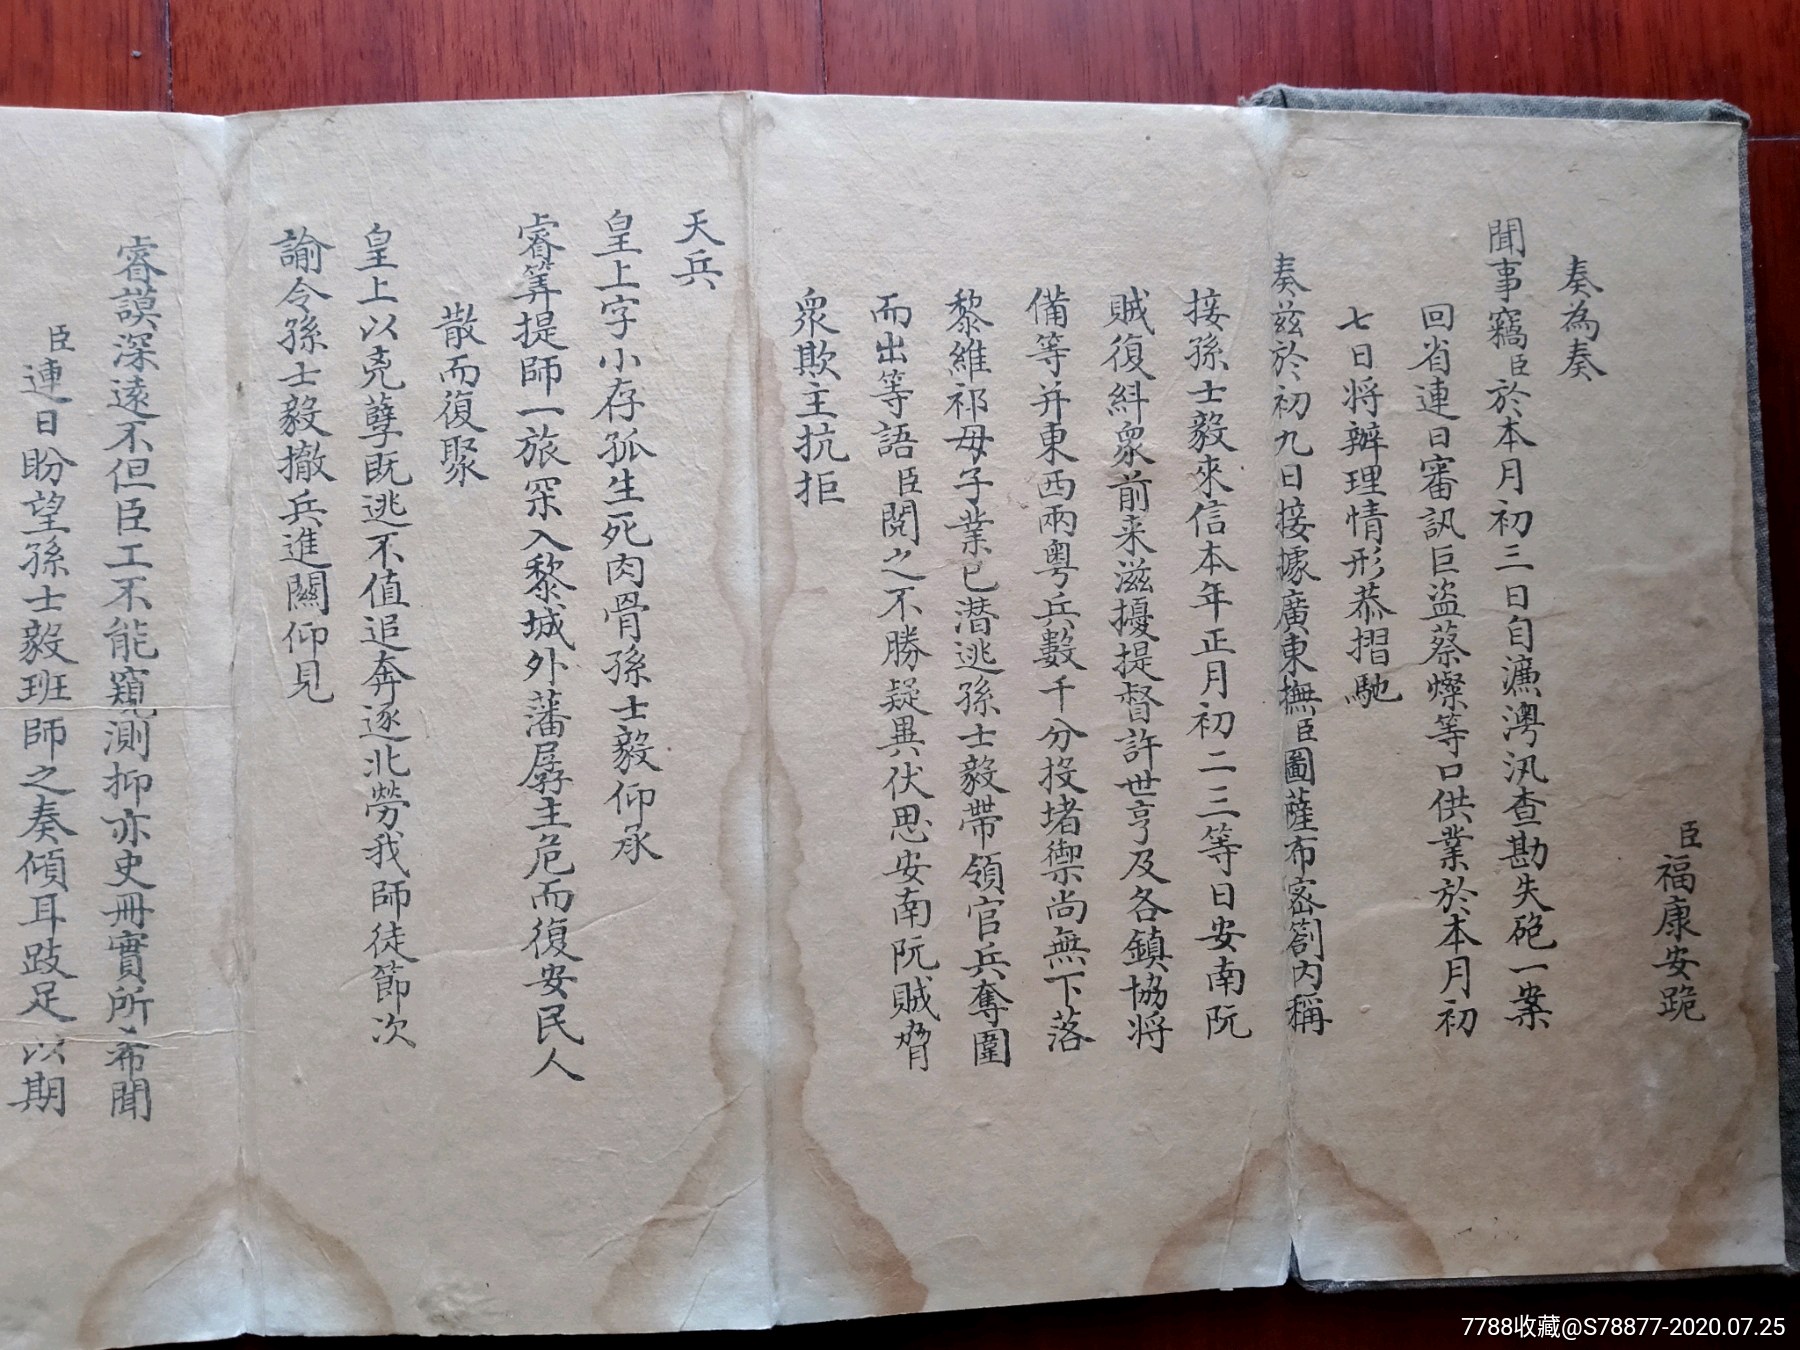 臣福康安跪
奏為奏
聞事竊臣於本月初三日自濂灣汛查勘失砲一案
回省連日審訊巨盜蔡燦等口供業於本月初
七日將辦理情形恭摺馳
奏茲於初九日接據廣東撫臣圖薩布密劄內稱
接孫士毅來信本年正月初二三等日安南阮
賊復糾衆前来滋擾提督許世亨及各鎮協將
備等并東西兩粤兵數千分投堵禦尚無下落
黎維祁母子業已潛逃孫士毅帶領官兵奪圍
而出等語臣閱之不勝疑異伏思安南阮賊脅
衆欺主抗拒
天兵
皇上字小存孤生死肉骨孫士毅仰承
睿筭提師一旅罙入黎城外藩孱主危而復安民人
散而復聚
皇上以克孽既逃不值追奔逐北勞我師徒節次
諭令孫士毅撤兵進關仰見
睿謨深遠不但臣工不能窺測抑亦史冊實所希聞
臣連日盼望孫士毅班師之奏傾耳跂足以期
7788收藏@S78877-2020.07.25